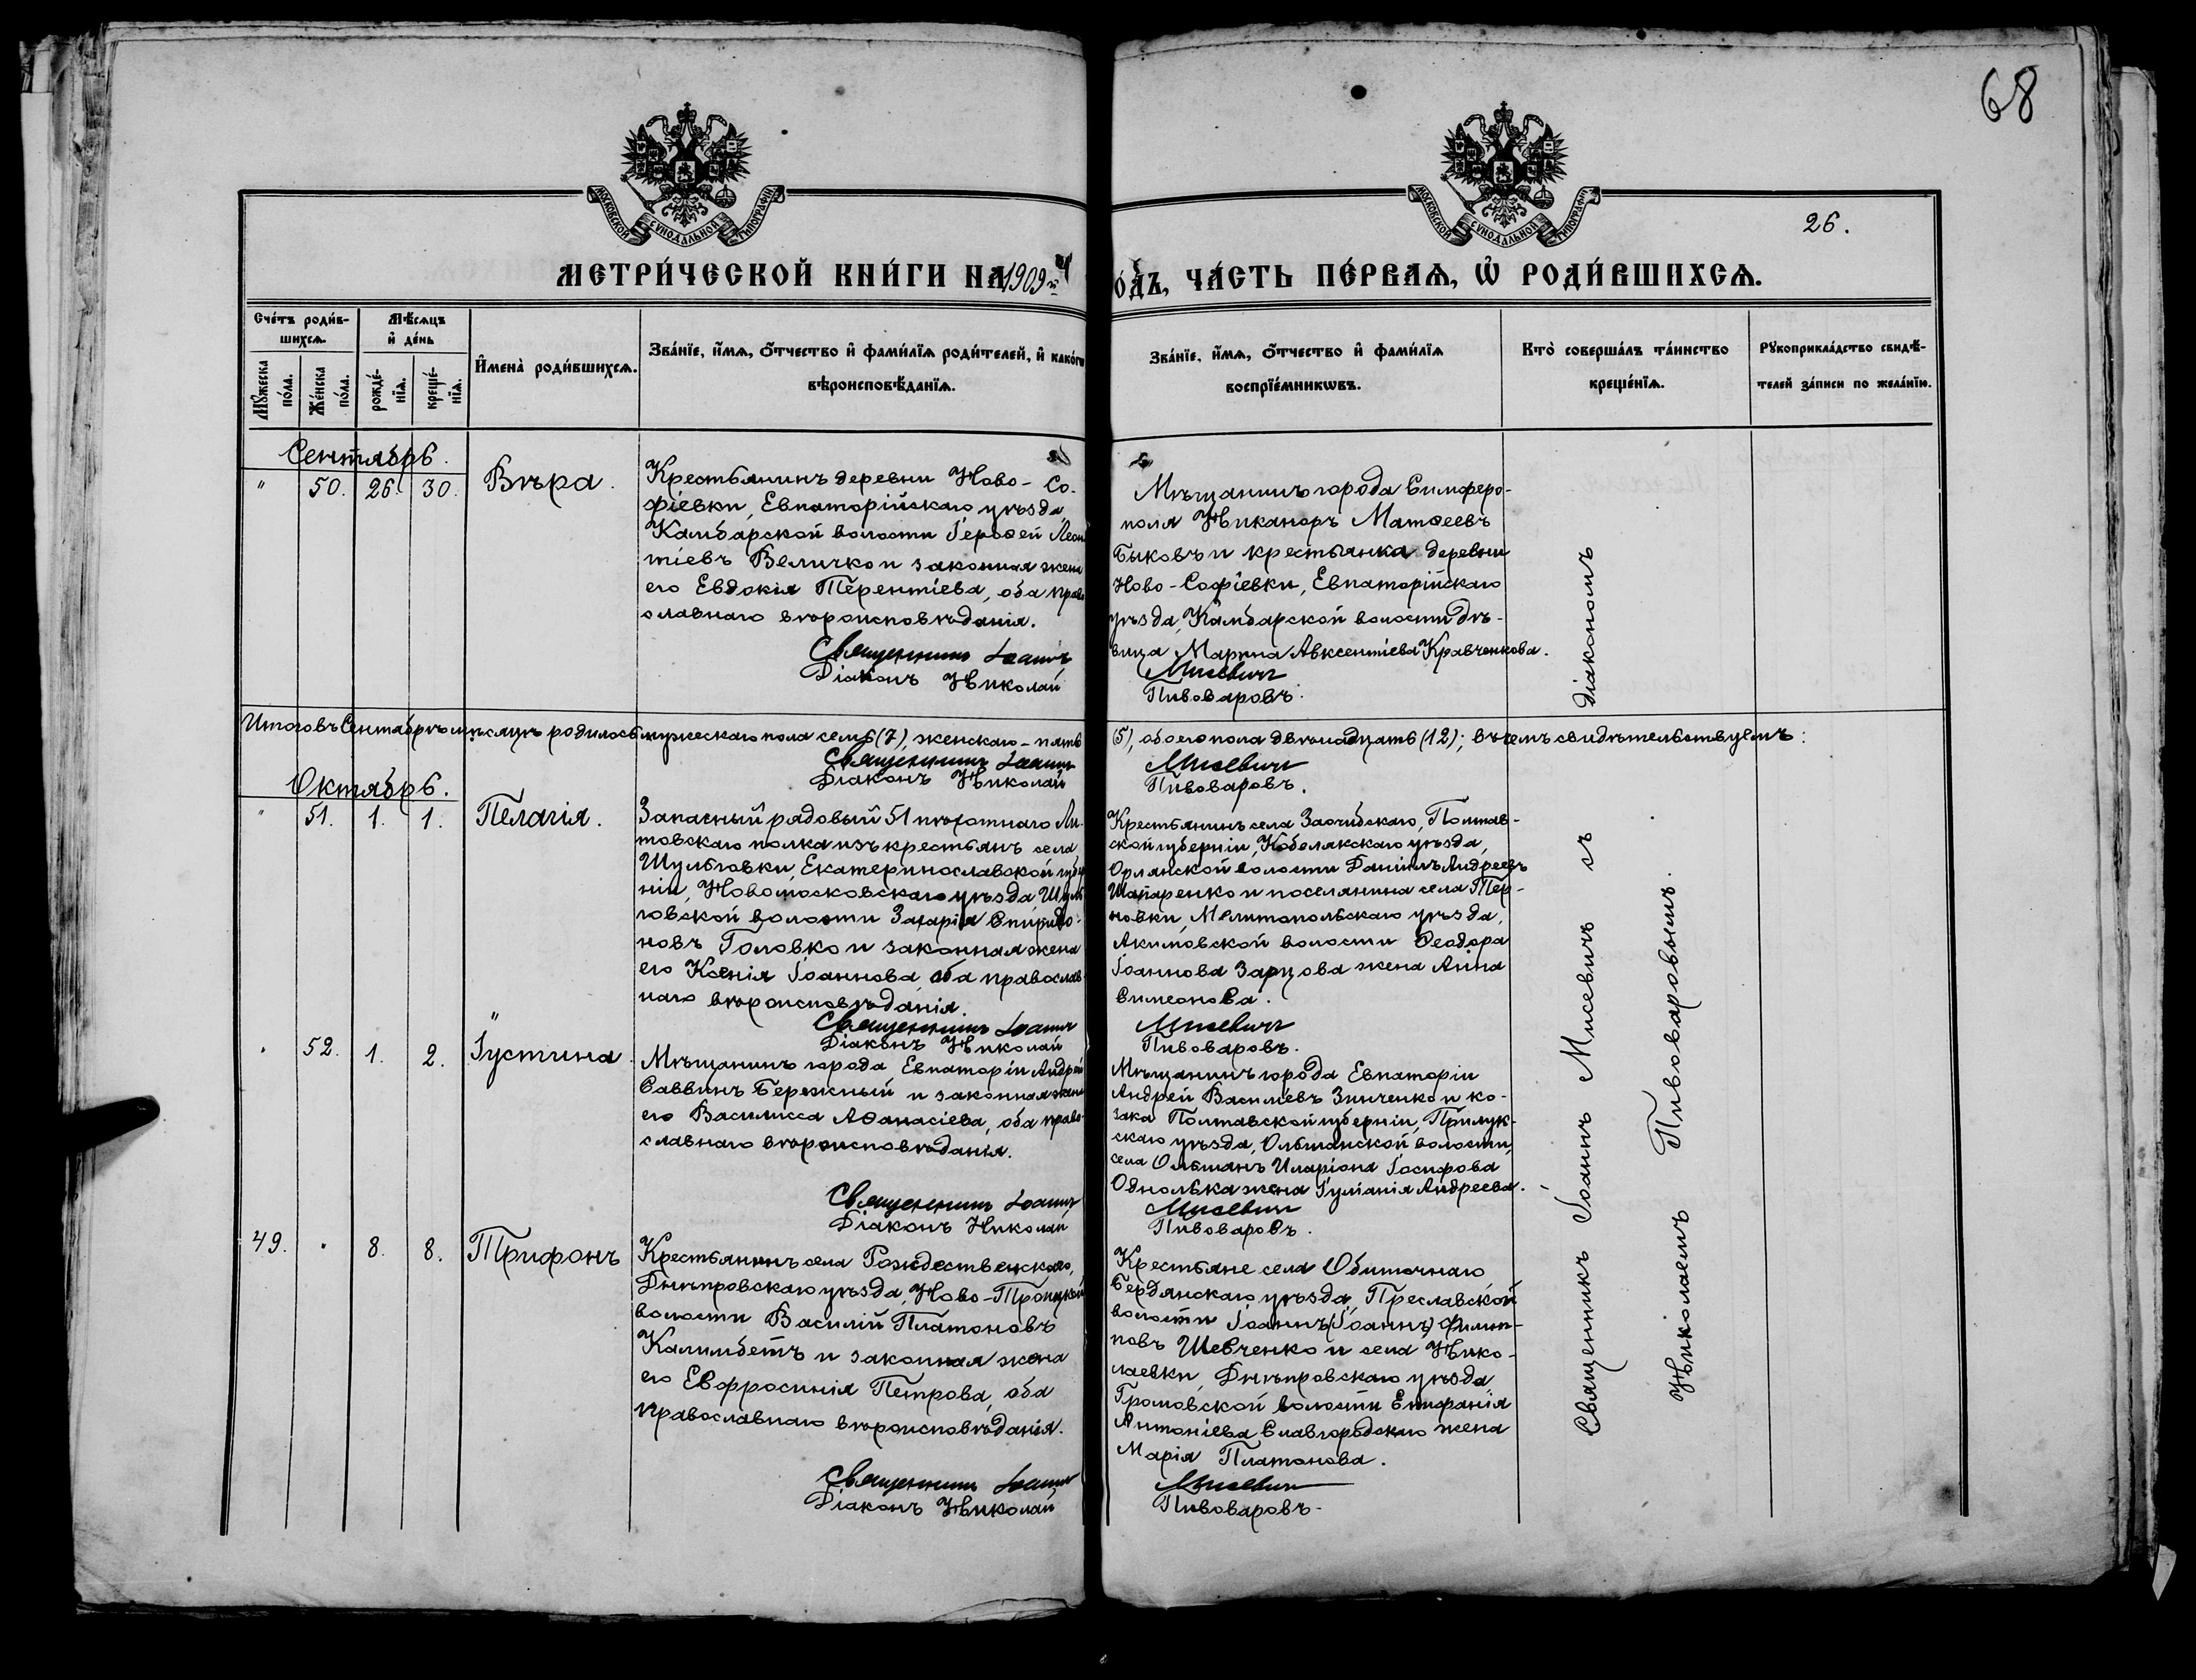 68
МОСКОВСКОЙ СУНОДАЛЬНОЙ ТИПОГРАФІИ
МОСКОВСКОЙ СУНОДАЛЬНОЙ ТИПОГРАФІИ
26.
МЕТРИ́ЧЕСКОЙ КНИ́ГИ НА 1909й го́дъ, ЧА́СТЬ ПЕ́РВАѦ, Ѡ҆ РОДИ́ВШИХСѦ.
Сче́тъ роди́в-
шихсѧ.
Мѣ́сѧцъ
и҆ де́нь
Мꙋ́жеска
по́ла.
Же́нска
по́ла.
рожде́-
нїѧ.
креще́-
нїѧ.
И҆мена̀ роди́вшихсѧ.
Зва́нїе, и҆́мѧ, ѻ҆́тчество и҆ фами́лїѧ роди́телей, и҆ како́гѡ
вѣроисповѣ́данїѧ.
Зва́нїе, и҆́мѧ, ѻ҆́тчество и҆ фами́лїѧ
воспрїе́мникѡвъ.
Кто̀ соверша́лъ та́инство
креще́нїѧ.
Рꙋкоприкла́дство свидѣ́-
телей за́писи по жела́нїю.
Сентябрь.
" 50. 26. 30. Вѣра.
Крестьянинъ деревни Ново-Со-
фіевки, Евпаторійскаго уѣзда
Камбарской волости Героѳей Леон
тіевъ Величко и законная жена
его Евдокія Терентіева, оба право
славнаго вѣроисповѣданія.
Священникъ Іоаннъ
Діаконъ Николай
Мѣщанинъ города Симферо-
поля Никаноръ Матѳеевъ
Быковъ и крестьянка деревни
Ново-Софіевки, Евпаторійскаго
уѣзда, Камбарской волости дѣ-
вица Марина Авксентіева Кравченкова.
Мисевичъ
Пивоваровъ.
Итого въ Сентябрѣ мѣсяцѣ родилось мужескаго пола семь (7), женскаго - пять (5), обоего пола двѣнадцать (12); въ чемъ свидѣтельствуемъ:
Священникъ Іоаннъ Мисевичъ
Діаконъ Николай Пивоваровъ.
Октябрь.
" 51. 1. 1. Пелагія.
Запасный рядовый 51 пѣхотнаго Ли-
товскаго полка изъ крестьянъ села
Шульговки, Екатеринославской губер
ніи, Новомосковскаго уѣзда Шуль
говской волости Захарія Спиридо-
новъ Головко и законная жена
его Ксенія Іоаннова, оба православ
наго вѣроисповѣданія.
Священникъ Іоаннъ
Діаконъ Николай
Крестьянинъ села Полтав-
ской губерніи, Кобелякскаго уѣзда,
Орлянской волости Даніилъ Андреевъ
Шапаренко и поселянина села Тер-
новки, Мелитопольскаго уѣзда,
Акимовской волости Ѳеодора
Іоаннова жена Анна
Симеонова.
Мисевичъ
Пивоваровъ.
" 52. 1. 2. Іустина.
Мѣщанинъ города Евпаторіи Андрей
Саввинъ Бережный и законная жена
его Василисса Аѳанасіева, оба право-
славнаго вѣроисповѣданія.
Священникъ Іоаннъ
Діаконъ Николай
Мѣщанинъ города Евпаторіи
Андрей Василіевъ Зинченко и ко-
зака Полтавской губерніи, Прилук-
скаго уѣзда, Ольшанской волости,
села Ольшанъ Иларіона Іосифова
Однолька жена Іуліанія Андреева.
Мисевичъ
Пивоваровъ.
49. " 8. 8. Трифонъ
Крестьянинъ села Рождественскаго,
Днѣпровскаго уѣзда, Ново-Троицкой
волости Василій Платоновъ
Калимбетъ и законная жена
его Евфросинія Петрова, оба
православнаго вѣроисповѣданія.
Священникъ Іоаннъ
Діаконъ Николай
Крестьяне села Обиточнаго
Бердянскаго уѣзда, Преславской
волости Іоаннъ (Іоаннъ) Филип-
повъ Шевченко и села Нико-
лаевки, Днѣпровскаго уѣзда
Громовской волости Епифанія
Антоніева Славгородскаго жена
Марія Платонова.
Мисевичъ
Пивоваровъ.
Священникъ Іоаннъ Мисевичъ съ діакономъ
Николаемъ Пивоваровымъ.